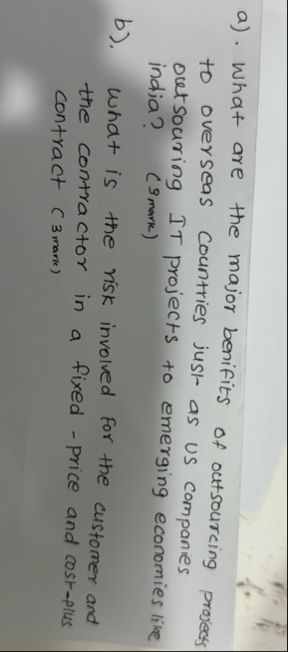 a). What are the major benifits of outsourcing projects
to overseas countries just as US companies
outsouring IT projects to emerging economies like
india? (3 mark)
b). What is the risk involved for the customer and
the contractor in a fixed - price and cost-plus
contract (3 mark)